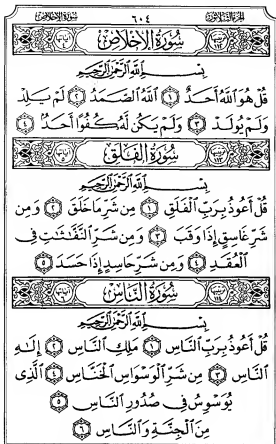 الجزء الثلاثون ٦٠٤ سورة الإخلاص
سُورَةُ الإِخْلَاصِ
بِسْمِ اللَّهِ الرَّحْمَٰنِ الرَّحِيمِ
قُلْ هُوَ اللَّهُ أَحَدٌ ١ اللَّهُ الصَّمَدُ ٢ لَمْ يَلِدْ
وَلَمْ يُولَدْ ٣ وَلَمْ يَكُن لَّهُ كُفُوًا أَحَدٌ ٤
سُورَةُ الفَلَقِ
بِسْمِ اللَّهِ الرَّحْمَٰنِ الرَّحِيمِ
قُلْ أَعُوذُ بِرَبِّ الْفَلَقِ ١ مِن شَرِّ مَا خَلَقَ ٢ وَمِن
شَرِّ غَاسِقٍ إِذَا وَقَبَ ٣ وَمِن شَرِّ النَّفَّٰثَٰتِ فِي
الْعُقَدِ ٤ وَمِن شَرِّ حَاسِدٍ إِذَا حَسَدَ ٥
سُورَةُ النَّاسِ
بِسْمِ اللَّهِ الرَّحْمَٰنِ الرَّحِيمِ
قُلْ أَعُوذُ بِرَبِّ النَّاسِ ١ مَلِكِ النَّاسِ ٢ إِلَٰهِ
النَّاسِ ٣ مِن شَرِّ الْوَسْوَاسِ الْخَنَّاسِ ٤ الَّذِي
يُوَسْوِسُ فِي صُدُورِ النَّاسِ ٥
مِنَ الْجِنَّةِ وَالنَّاسِ ٦